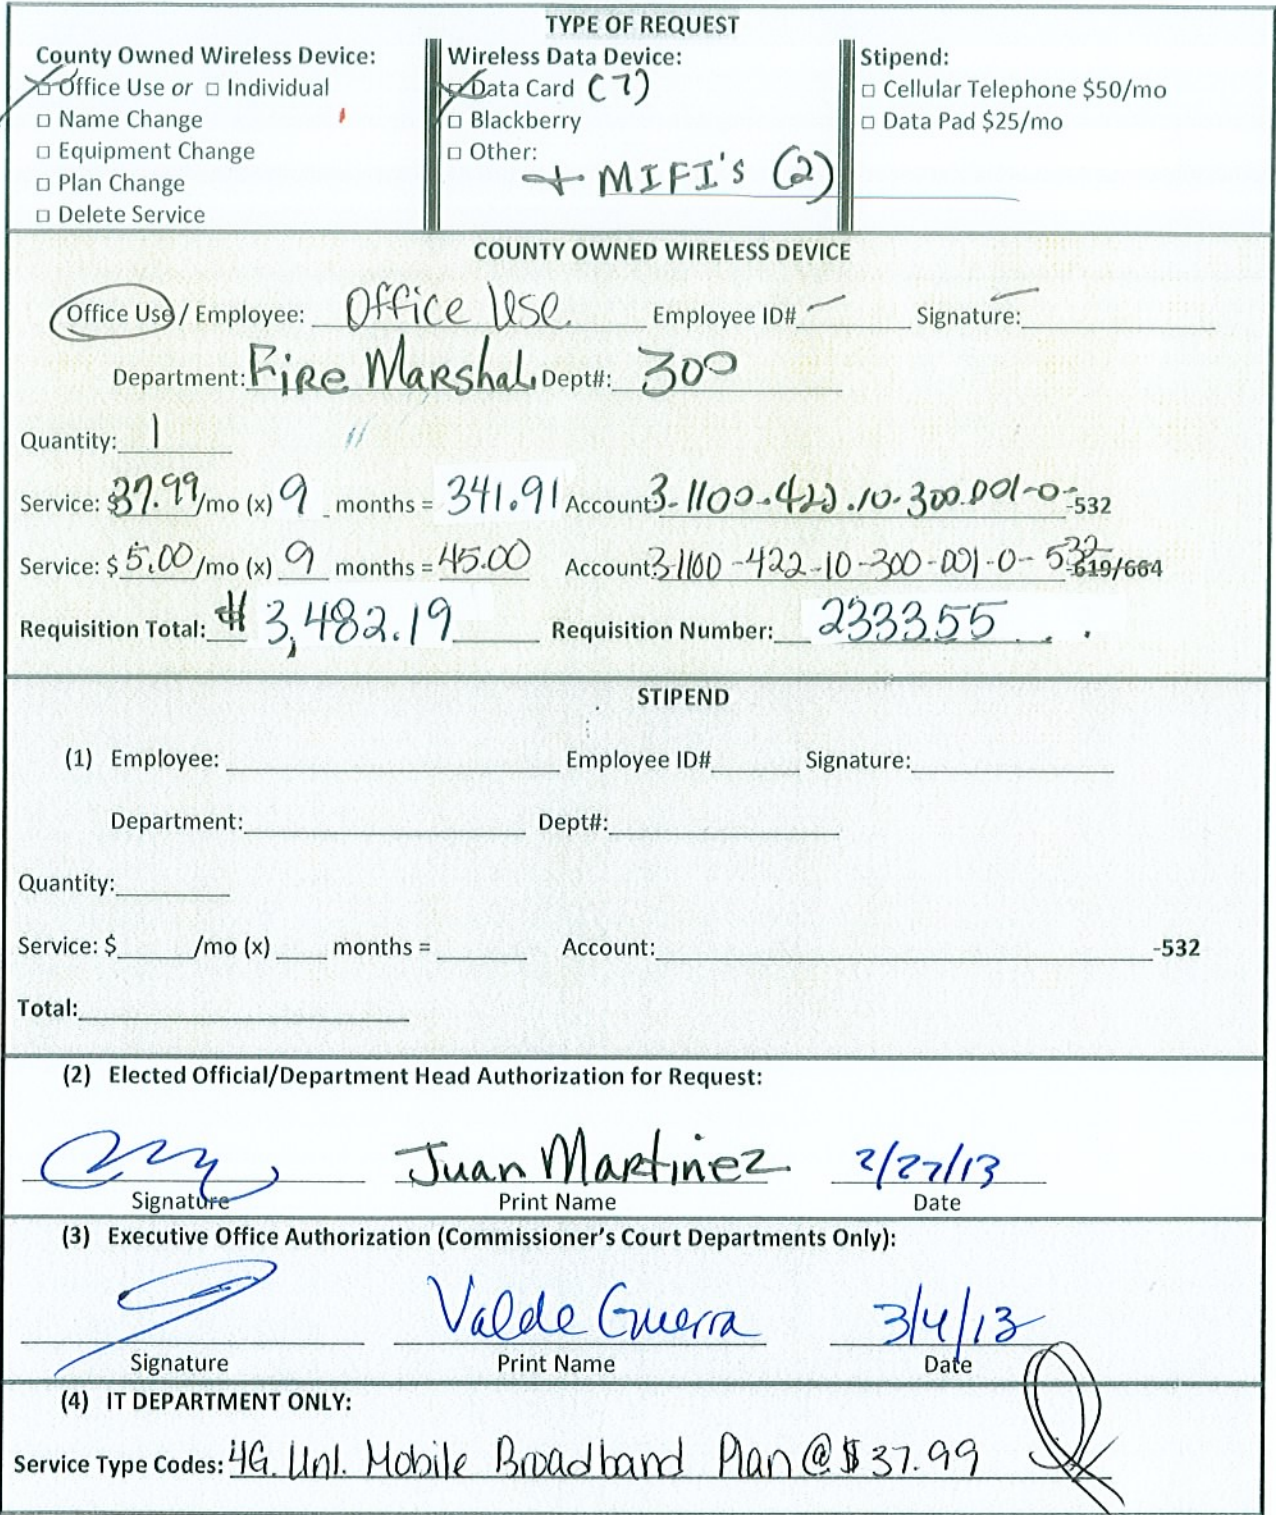 TYPE OF REQUEST
County Owned Wireless Device:
□ Office Use or □ Individual
□ Name Change
□ Equipment Change
□ Plan Change
□ Delete Service
Wireless Data Device:
□ Data Card (7)
□ Blackberry
□ Other:
+ MIFI's (2)
Stipend:
□ Cellular Telephone $50/mo
□ Data Pad $25/mo
COUNTY OWNED WIRELESS DEVICE
Office Use / Employee: Office Use Employee ID# — Signature: —
Department: Fire Marshal Dept#: 300
Quantity: 1
Service: $37.99/mo (x) 9 months = 341.91 Account: 3-1100-422-10-300-001-0-532
Service: $ 5.00/mo (x) 9 months = 45.00 Account: 3-1100-422-10-300-001-0-532 -619/664
Requisition Total: # 3,482.19 Requisition Number: 233355
STIPEND
(1) Employee: Employee ID# Signature:
Department: Dept#:
Quantity:
Service: $ /mo (x) months = Account: -532
Total:
(2) Elected Official/Department Head Authorization for Request:
Juan Martinez 2/27/13
Signature Print Name Date
(3) Executive Office Authorization (Commissioner's Court Departments Only):
Valde Guerra 3/4/13
Signature Print Name Date
(4) IT DEPARTMENT ONLY:
Service Type Codes: 4G. Unl. Mobile Broadband Plan @ $37.99